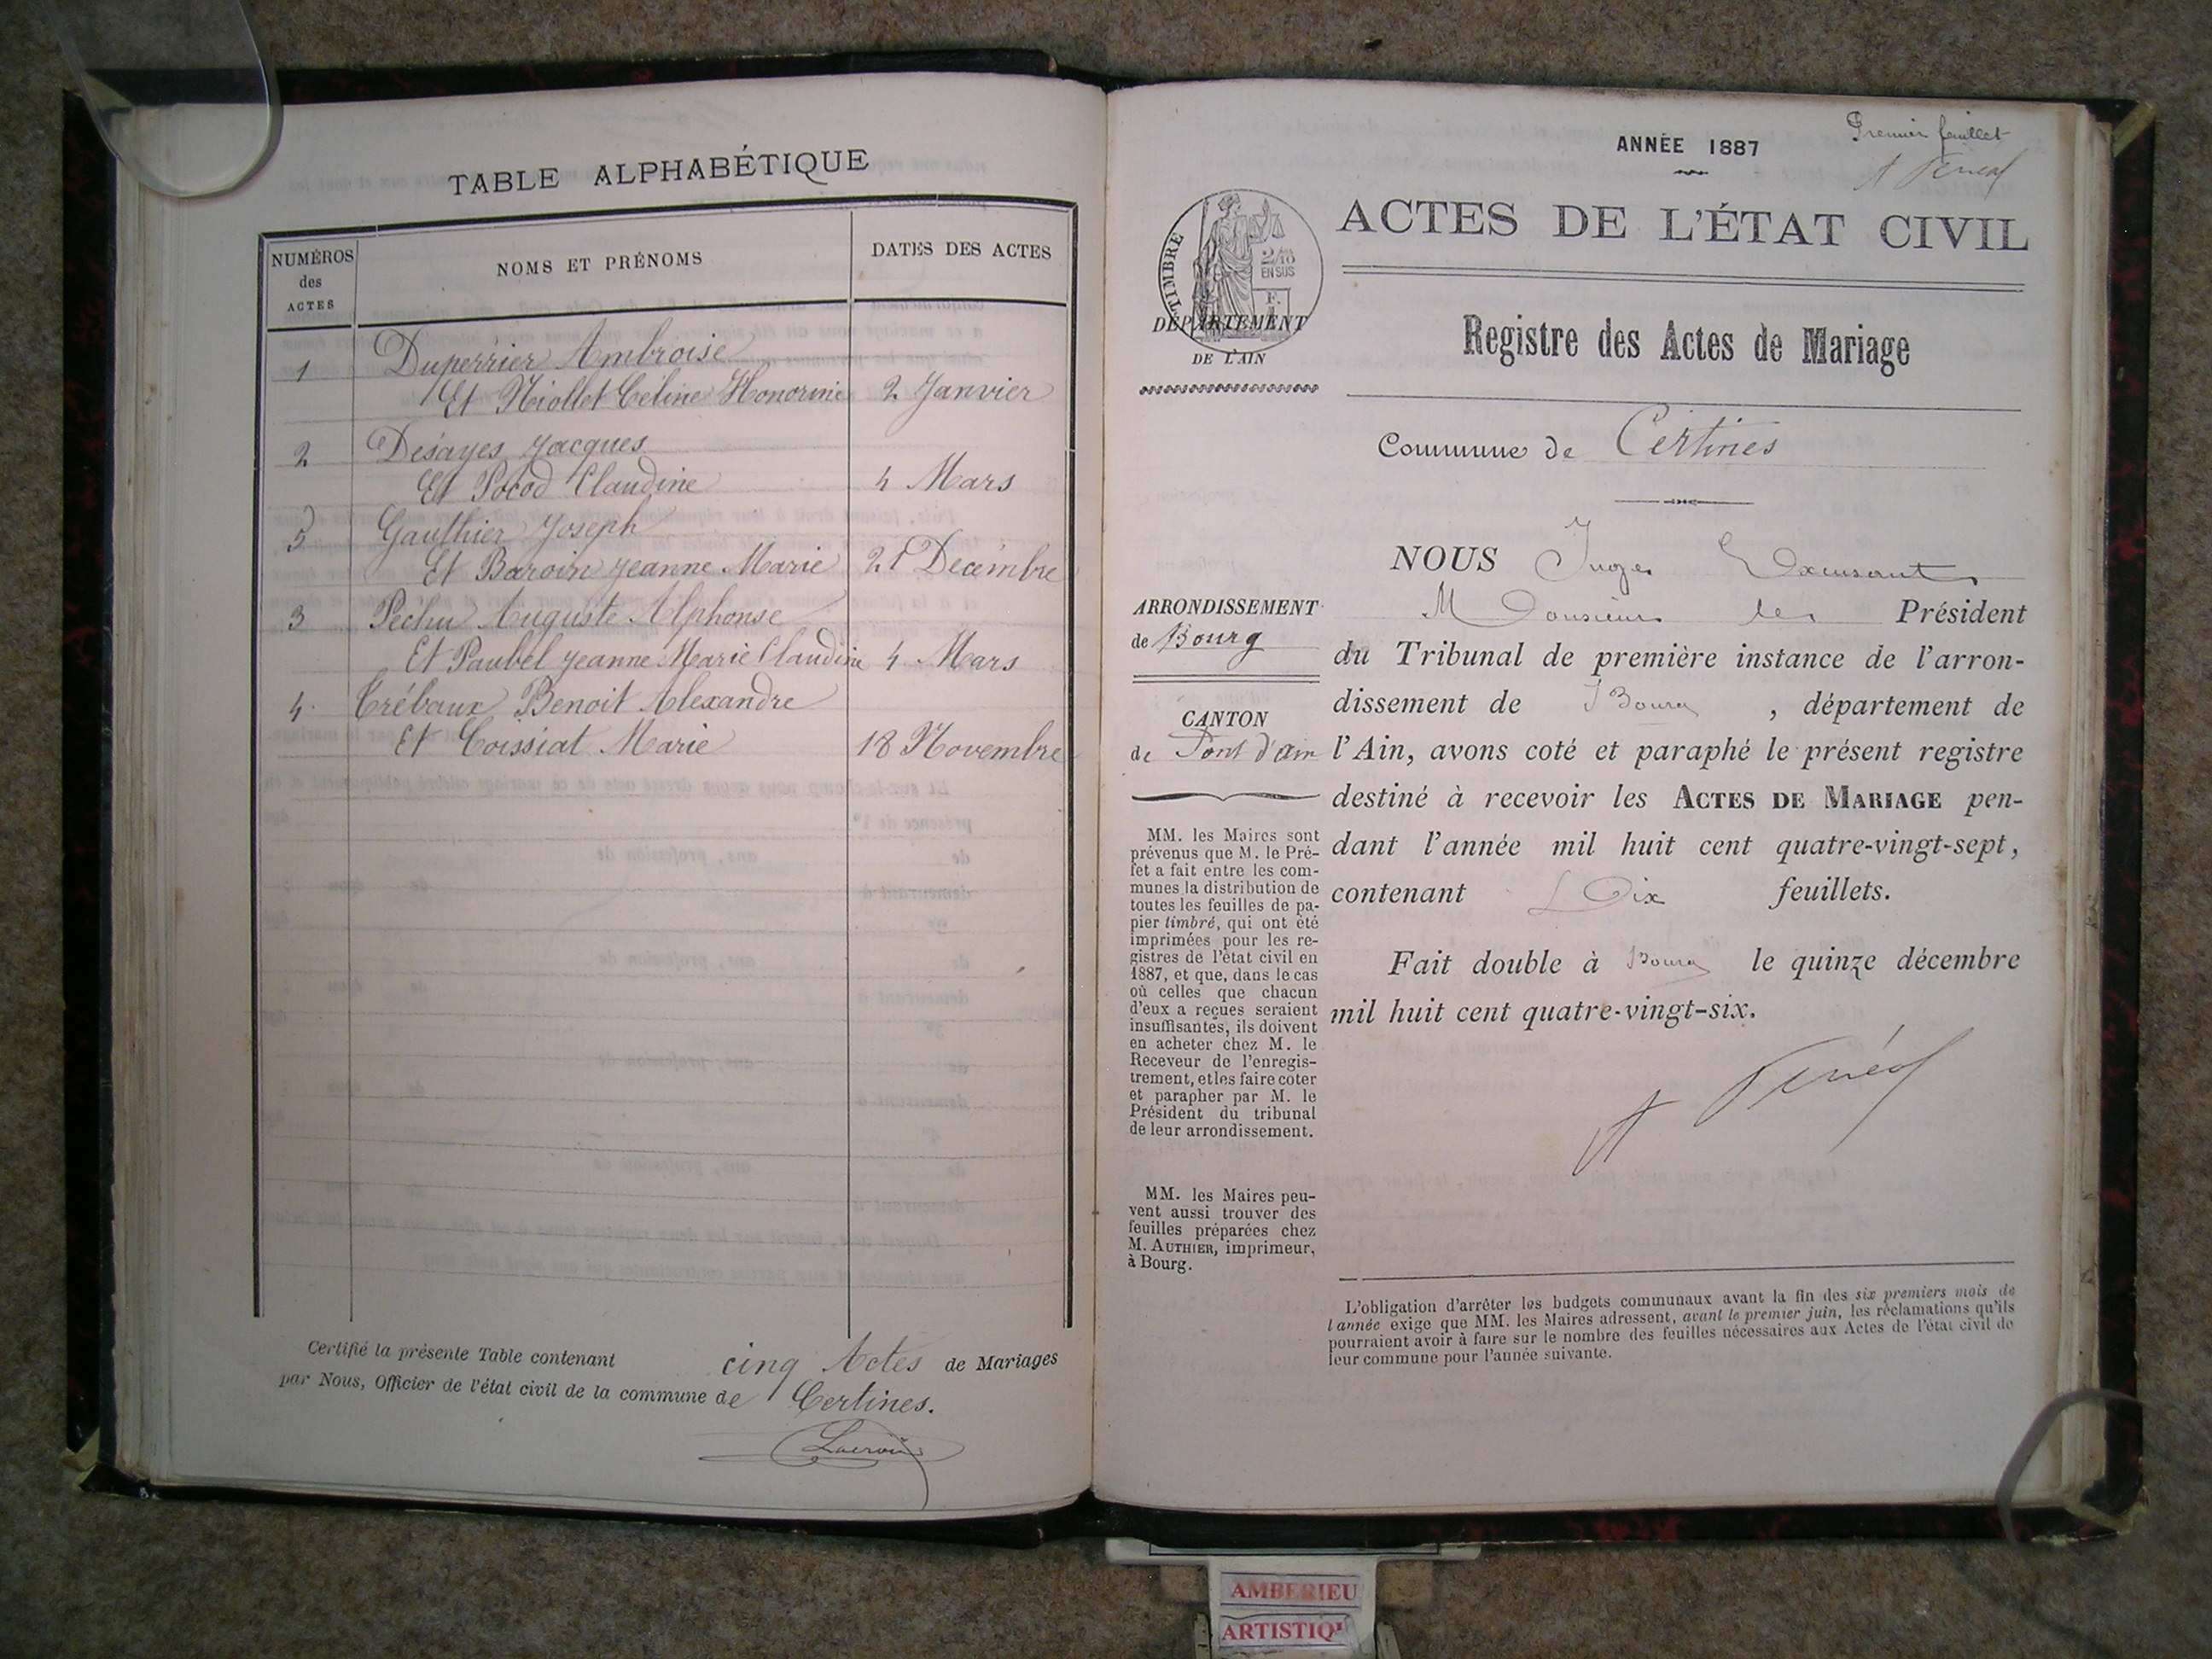 TABLE ALPHABÉTIQUE
NUMÉROS
des
ACTES
NOMS ET PRÉNOMS
DATES DES ACTES
1 Duperrier Ambroise
Et Niollet Céline Honorine 2 Janvier
2 Desayes Jacques
Et Pocod Claudine 4 Mars
5 Gauthier Joseph
Et Baroin Jeanne Marie 21 Décembre
3 Pechu Auguste Alphonse
Et Paubel Jeanne Marie Claudine 4 Mars
4 Crébaux Benoit Alexandre
Et Coissiat Marie 18 Novembre
Certifié la présente Table contenant cinq Actes de Mariages
par Nous, Officier de l'état civil de la commune de Certines.
Lacroix
Premier feuillet
ANNÉE 1887
ACTES DE L'ÉTAT CIVIL
TIMBRE
2/10
EN SUS
F.
DÉPARTEMENT
DE L'AIN
Registre des Actes de Mariage
Commune de Certines
ARRONDISSEMENT
de Bourg
CANTON
de Pont d'ain
MM. les Maires sont
prévenus que M. le Pré-
fet a fait entre les com-
munes la distribution de
toutes les feuilles de pa-
pier timbré, qui ont été
imprimées pour les re-
gistres de l'état civil en
1887, et que, dans le cas
où celles que chacun
d'eux a reçues seraient
insuffisantes, ils doivent
en acheter chez M. le
Receveur de l'enregis-
trement, et les faire coter
et parapher par M. le
Président du tribunal
de leur arrondissement.
MM. les Maires peu-
vent aussi trouver des
feuilles préparées chez
M. AUTHIER, imprimeur,
à Bourg.
NOUS Juge
Monsieur le Président
du Tribunal de première instance de l'arron-
dissement de Bourg, département de
l'Ain, avons coté et paraphé le présent registre
destiné à recevoir les ACTES DE MARIAGE pen-
dant l'année mil huit cent quatre-vingt-sept,
contenant Dix feuillets.
Fait double à Bourg le quinze décembre
mil huit cent quatre-vingt-six.
L'obligation d'arrêter les budgets communaux avant la fin des six premiers mois de
l'année exige que MM. les Maires adressent, avant le premier juin, les réclamations qu'ils
pourraient avoir à faire sur le nombre des feuilles nécessaires aux Actes de l'état civil de
leur commune pour l'année suivante.
AMBERIEU
ARTISTIQ